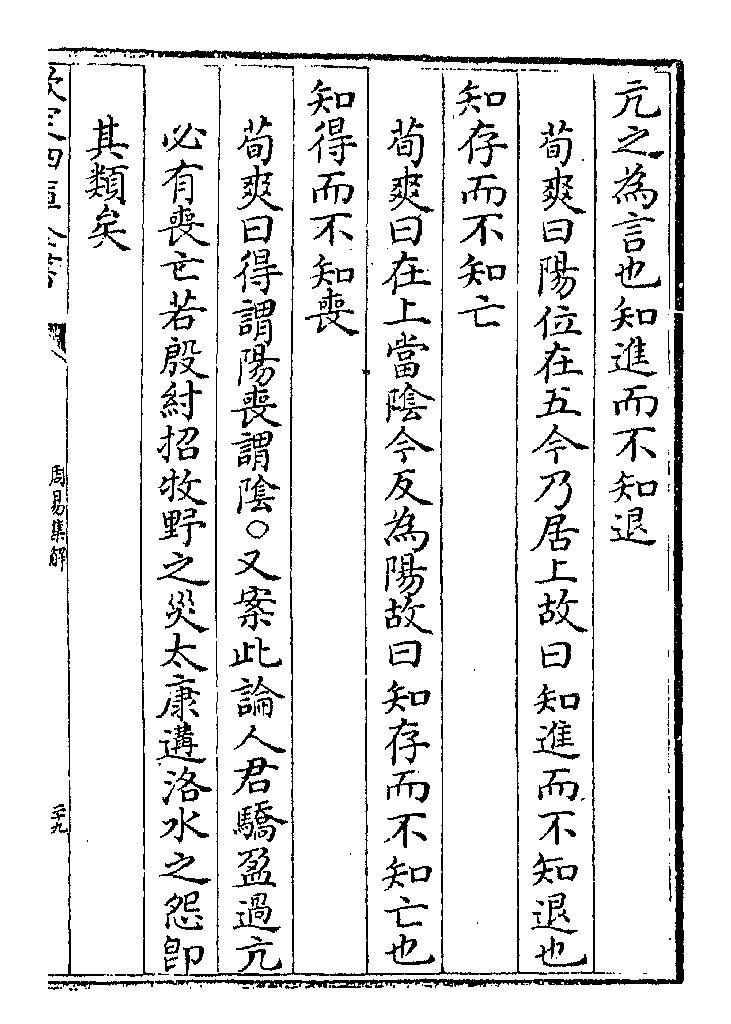 亢之為言也知進而不知退
荀爽曰陽位在五今乃居上故曰知進而不知退也
知存而不知亡
荀爽曰在上當陰今反為陽故曰知存而不知亡也
知得而不知喪
荀爽曰得謂陽喪謂陰○又案此論人君驕盈過亢
必有喪亡若殷紂招牧野之災太康遘洛水之怨卽
其類矣
欽定四庫全書
周易集解
二十九